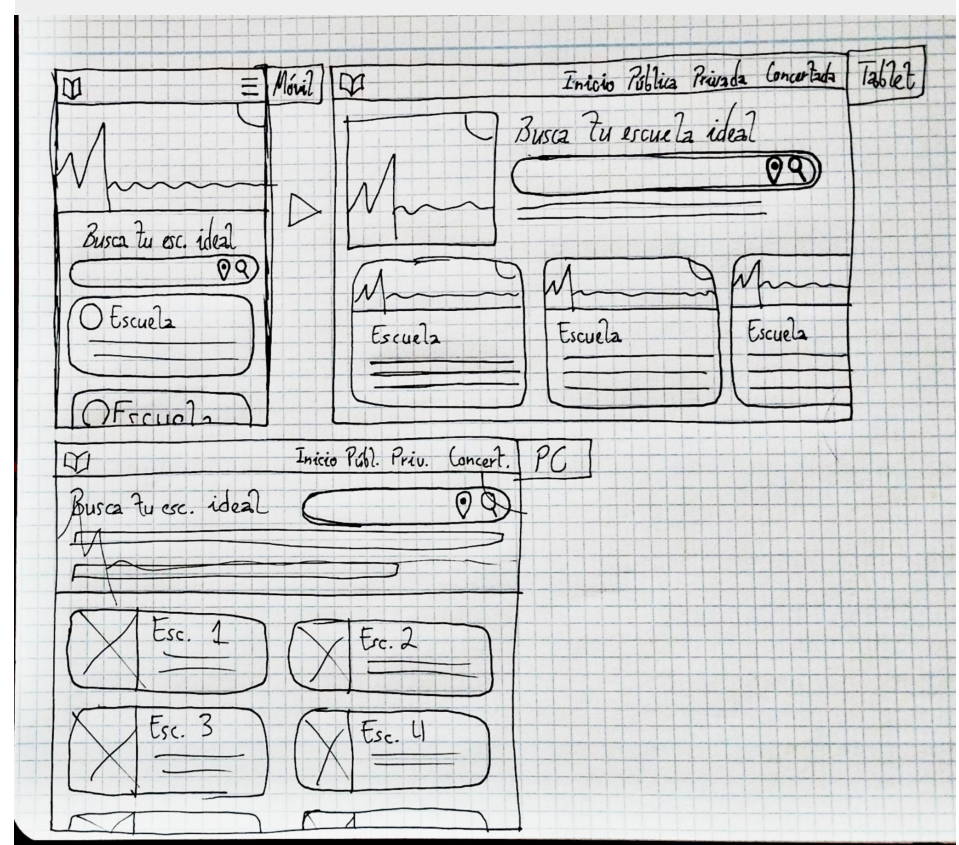 Móvil
Busca tu esc. ideal
Escuela
Escuela
Inicio Pública Privada Concertada
Tablet
Busca tu escuela ideal
Escuela
Escuela
Escuela
Inicio Públ. Priv. Concert.
PC
Busca tu esc. ideal
Esc. 1
Esc. 2
Esc. 3
Esc. 4